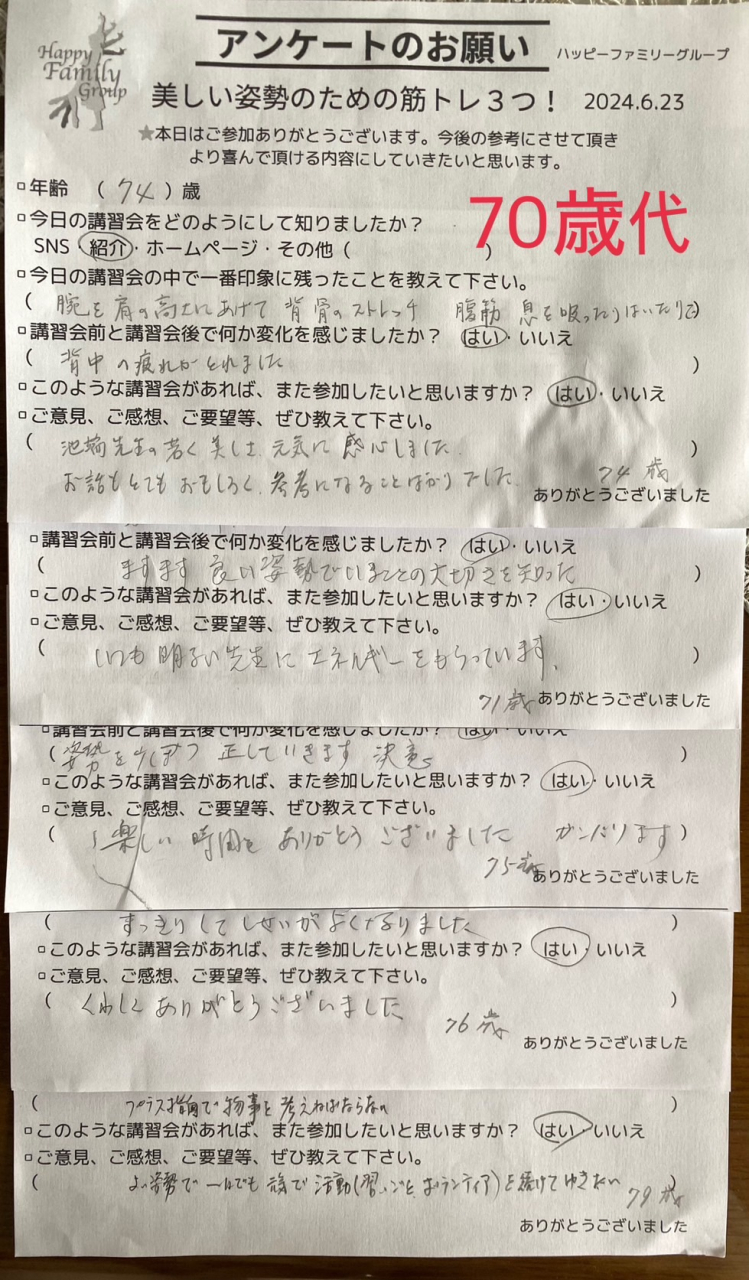 Happy
Family
Group
アンケートのお願い
ハッピーファミリーグループ
美しい姿勢のための筋トレ3つ！ 2024.6.23
★本日はご参加ありがとうございます。今後の参考にさせて頂き
より喜んで頂ける内容にしていきたいと思います。
年齢 （ 74 ）歳
70歳代
今日の講習会をどのようにして知りましたか？
SNS 紹介・ホームページ・その他（ ）
今日の講習会の中で一番印象に残ったことを教えて下さい。
（ 腕を肩の高さにあげて 背骨のストレッチ 腹筋 息を吸ったりはいたりで）
講習会前と講習会後で何か変化を感じましたか？ はい・いいえ
（ 背中の疲れがとれました ）
このような講習会があれば、また参加したいと思いますか？ はい・いいえ
ご意見、ご感想、ご要望等、ぜひ教えて下さい。
（ 先生の若く美しさ 元気に感心しました ）
お話もとてもおもしろく、参考になることばかりでした。 74歳
ありがとうございました
講習会前と講習会後で何か変化を感じましたか？ はい・いいえ
（ ますます良い姿勢でいることの大切さを知った ）
このような講習会があれば、また参加したいと思いますか？ はい・いいえ
ご意見、ご感想、ご要望等、ぜひ教えて下さい。
（ いつも明るい先生にエネルギーをもらっています。 ）
71歳 ありがとうございました
講習会前と講習会後で何か変化を感じましたか？ はい・いいえ
（ 姿勢を少しずつ 正していきます 決意 ）
このような講習会があれば、また参加したいと思いますか？ はい・いいえ
ご意見、ご感想、ご要望等、ぜひ教えて下さい。
（ 楽しい時間を ありがとうございました ガンバります ）
75歳 ありがとうございました
（ すっきりして しせいがよくなりました ）
このような講習会があれば、また参加したいと思いますか？ はい・いいえ
ご意見、ご感想、ご要望等、ぜひ教えて下さい。
（ くわしくありがとうございました ）
76歳
ありがとうございました
（ プラス指向で物事を考えねばならない ）
このような講習会があれば、また参加したいと思いますか？ はい・いいえ
ご意見、ご感想、ご要望等、ぜひ教えて下さい。
（ よい姿勢で 一日でも 活動(習いごと、ボランティア)を続けてゆきたい ）
79歳
ありがとうございました